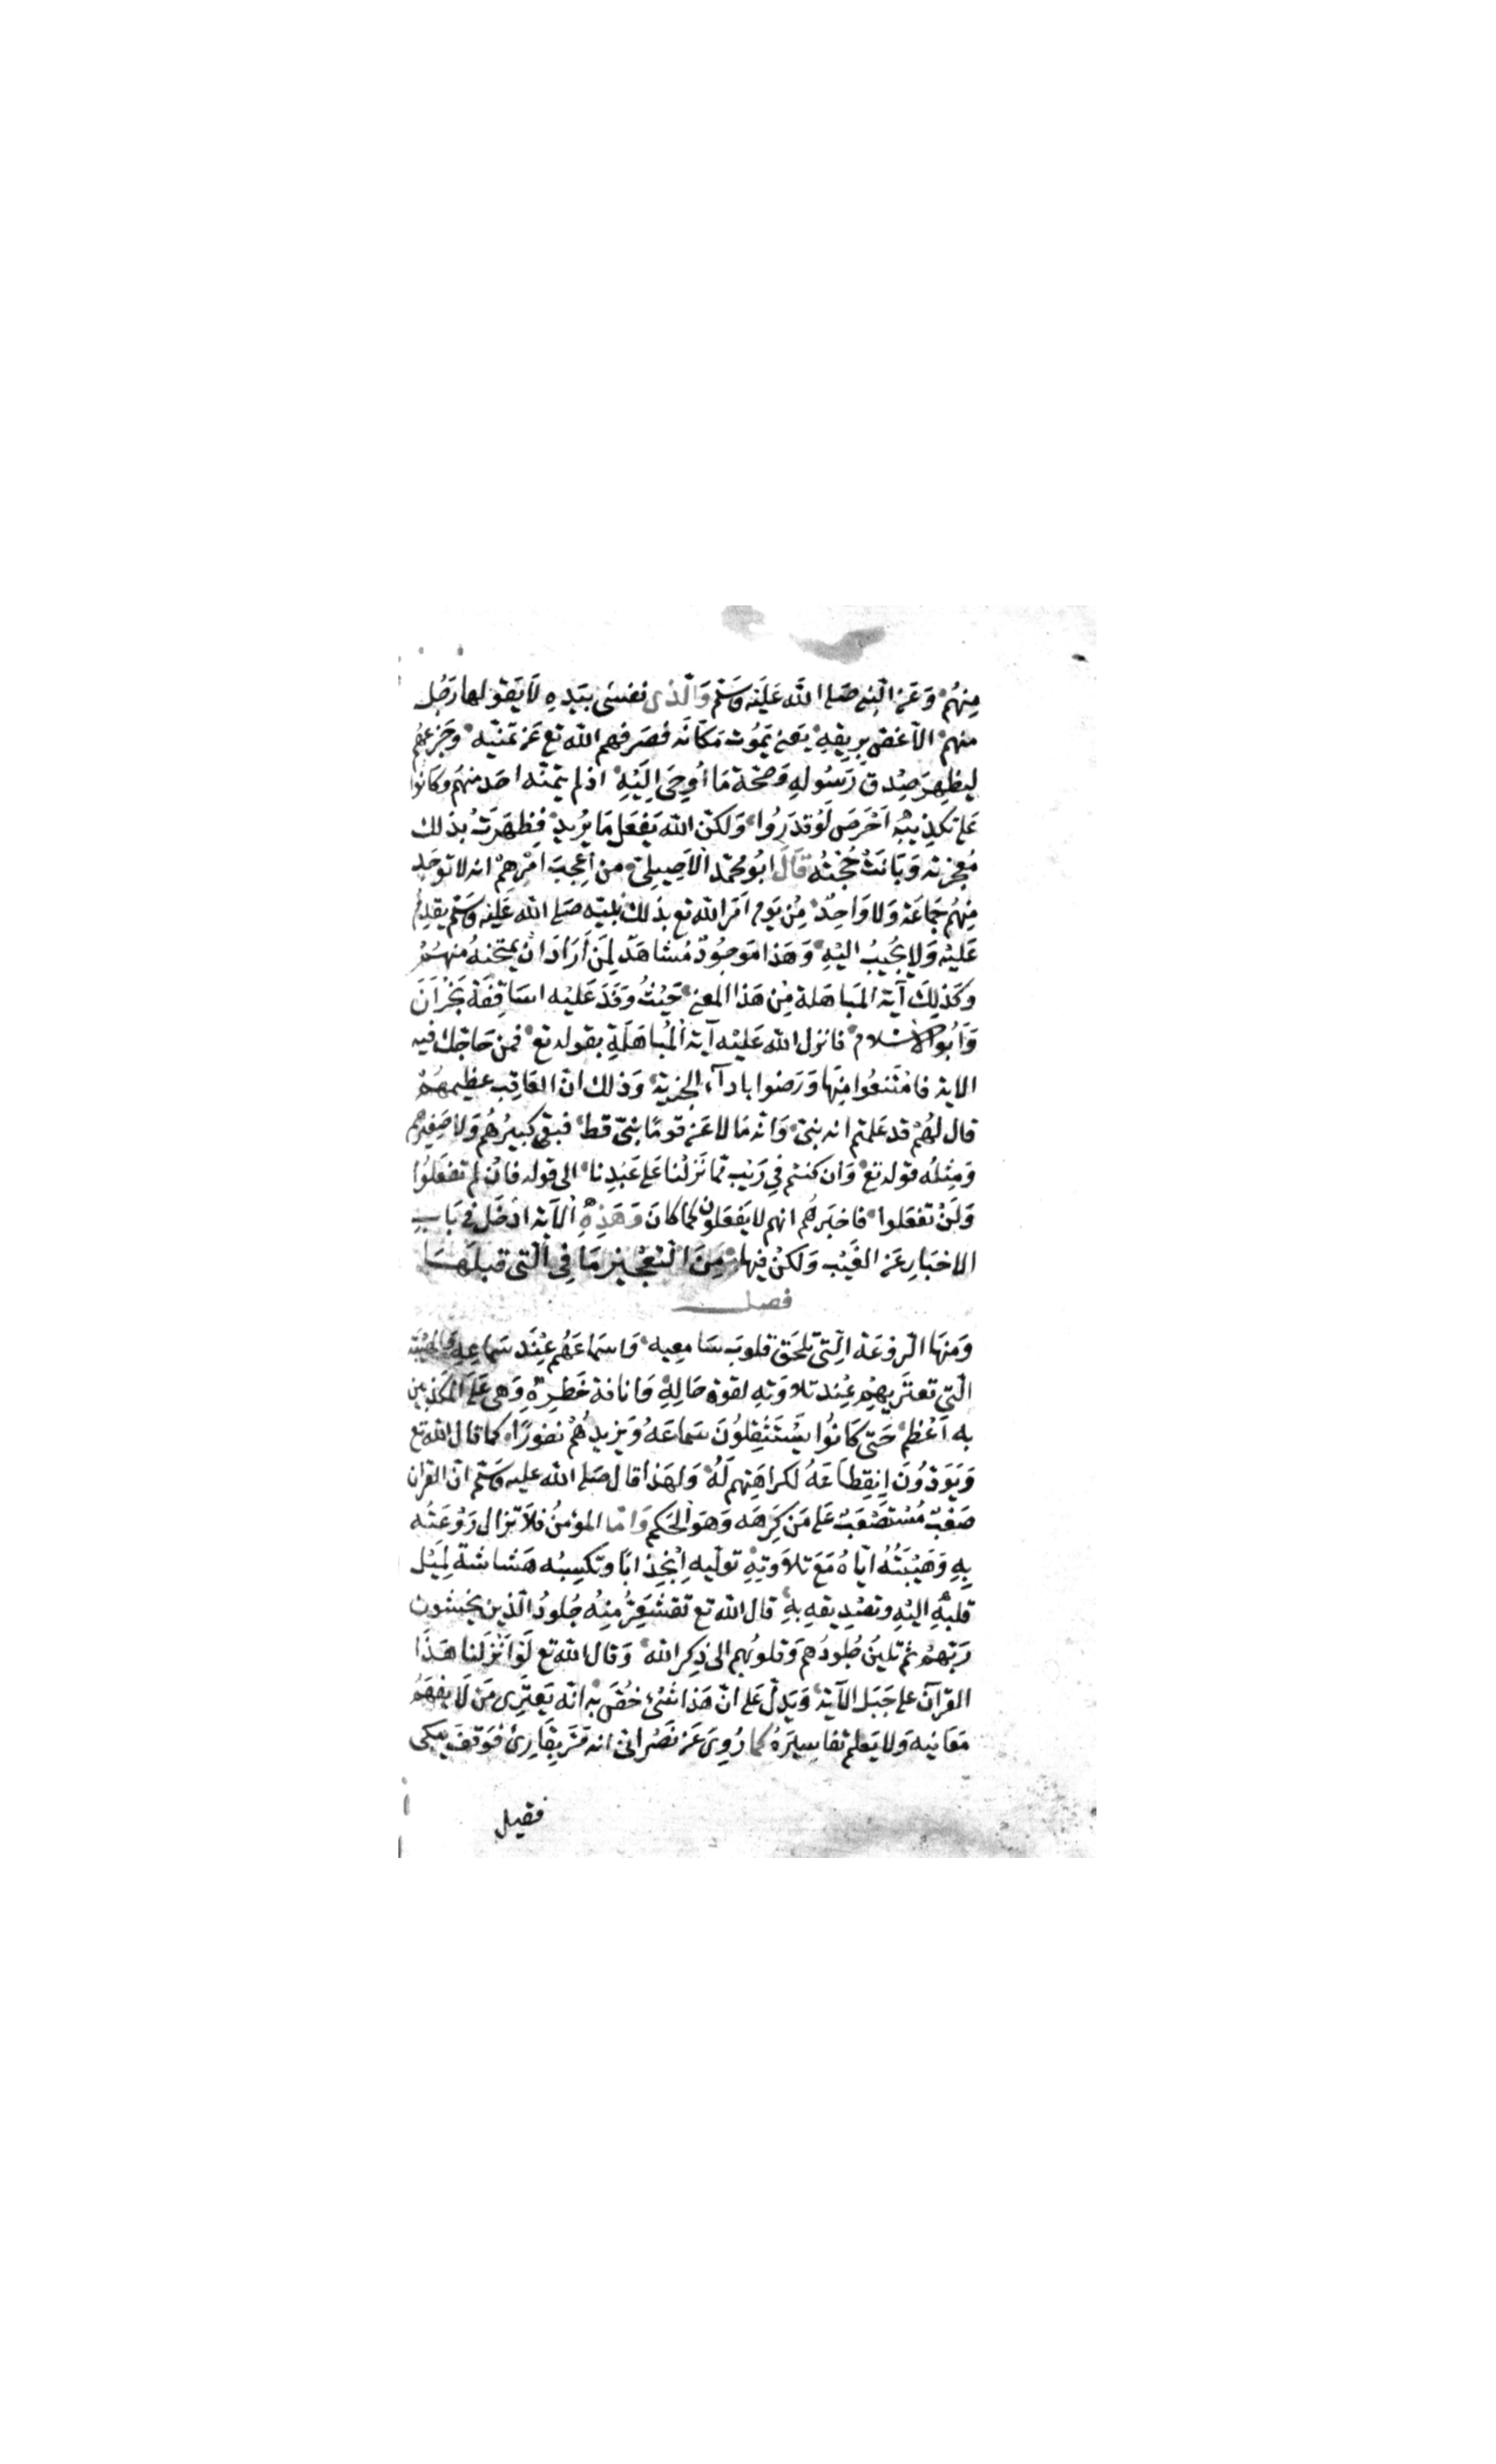 مِنهُم وَعَن النَّبى صَلى اللّه عَلَيْه وَسَلّم وَالّذى نفسى بيَدِهِ لَا يَقولها رَجُل
منهم الّا غصّ بِرِيقِهِ يَعنى يَمُوت مَكانَه فصَرفهم اللّه تع عَن تمنّيه وَجَزّعهُم
ليظهِرَ صِدق رَسُولِهِ وَصحّة مَا أُوحِىَ اِلَيْهِ اذ لم يتمنّه احَد منهُم وكانوا
عَلى تكذيبِهِ اَحْرَصَ لَوْ قدَرُوا وَلكنّ اللّه يَفعَل مَا يُريد فَظهَرَتْ بذلك
مُعجزته وَبَانَتْ حُجّتُه قَالَ ابُو محمّد الْاَصِيلىّ من اَعجبِ امْرهِمْ انه لا توجَد
مِنهُم جَمَاعَة وَلا وَاحِدٌ مِنْ يَوم اَمَرَ اللّه تع بذلك نَبيّه صَلى اللّه عَليْه وَسَلم يقدِمُ
عَليْه وَلا يُجيبُ اليْهِ وَهَذا مَوجُودٌ مُشاهَدٌ لِمَن اَرَادَ انْ يمتحنهُ منهُمْ
وكَذلِكَ آية المبَاهَلة مِن هَذا المعنى حَيْثُ وَفَدَ عَليْه اسَاقِفَة نَجْرَانَ
وَاَبُوا الاسْلام فانزل اللّه عَليْه آية الْمُبَاهَلَةِ بقوله تع فمن حَاجّك فيه
الاية فامْتَنعُوا مِنهَا وَرَضوا بادآء الجزية وَذلك انّ العَاقِب عظيمهُمْ
قال لهُم قد عَلمتم انه نبىّ وَانّه مَا لاعَن قومًا نبىّ قط فبقى كبيرُهُم وَلا صَغِيرهم
وَمِثلُه قوله تع وَان كنتم فِى رَيْب ممّا نَزلْنا عَلى عَبْدِنا الى قوله فانْ لم تفعَلُوا
وَلَنْ تفعَلوا فاخبَرهُم انهم لا يَفعَلون كما كانَ وَهَذِهِ الْآيَة ادْخَل فى بَابِ
الاخبَارِ عَن الغَيْب وَلكنْ فيهَا مِنَ التعْجيز مَا فِى الّتى قبلَهَا
فصل
وَمنهَا الرّوعَة الّتى تلحَق قلوب سَامِعِيه وَاسمَاعَهُم عِنْدَ سَمَاعِهِ وَالهيْبَة
الّتى تعتَريهِم عِند تلاوَتِهِ لقوة حَالِهِ وَانافة خَطِرِه وَهى عَلى المكذبين
به اَعْظم حَتّى كانُوا يَسْتَثقِلُونَ سَماعَهُ وَيَزيدُهُمْ نفورًا كما قال اللّه تع
وَيَوَدّونَ اِنقِطاعَهُ لكراهَتِهم لَهُ وَلهَذا قال صَلى اللّه عليه وَسَلم انّ القران
صَعْبٌ مُسْتَصْعَبٌ عَلى مَن كَرِهَه وَهوَ الحَكم وَامّا المؤمنُ فلَا تزال رَوْعَتُه
بِهِ وَهَيْبَتُهُ ايّاهُ مَعَ تلاوَتِهِ توليه اِنْجِذابًا وتكسِبُه هَشاشة لِمَيْل
قلبِهِ اليْهِ وتصْدِيقِهِ بِهِ قال اللّه تع تقشَعِرُّ مِنْه جُلودُ الّذين يخشون
رَبّهُمْ ثم تلينُ جُلودُهُم وَقلوبُهم الى ذِكر اللّه وَقال اللّه تع لَوْ اَنْزلنا هَذَا
القرآن عَلى جَبَل الآية وَيَدلّ عَلى انّ هَذا شئ خُصّ به انّه يَعتَرى مَن لَا يفهَمُ
مَعَانيه وَلا يَعلم تفاسِيرَهُ كما رُوِىَ عَن نَصْرانىّ انه مَرّ بِقَارِئ فوَقفَ يبكى
فقيل